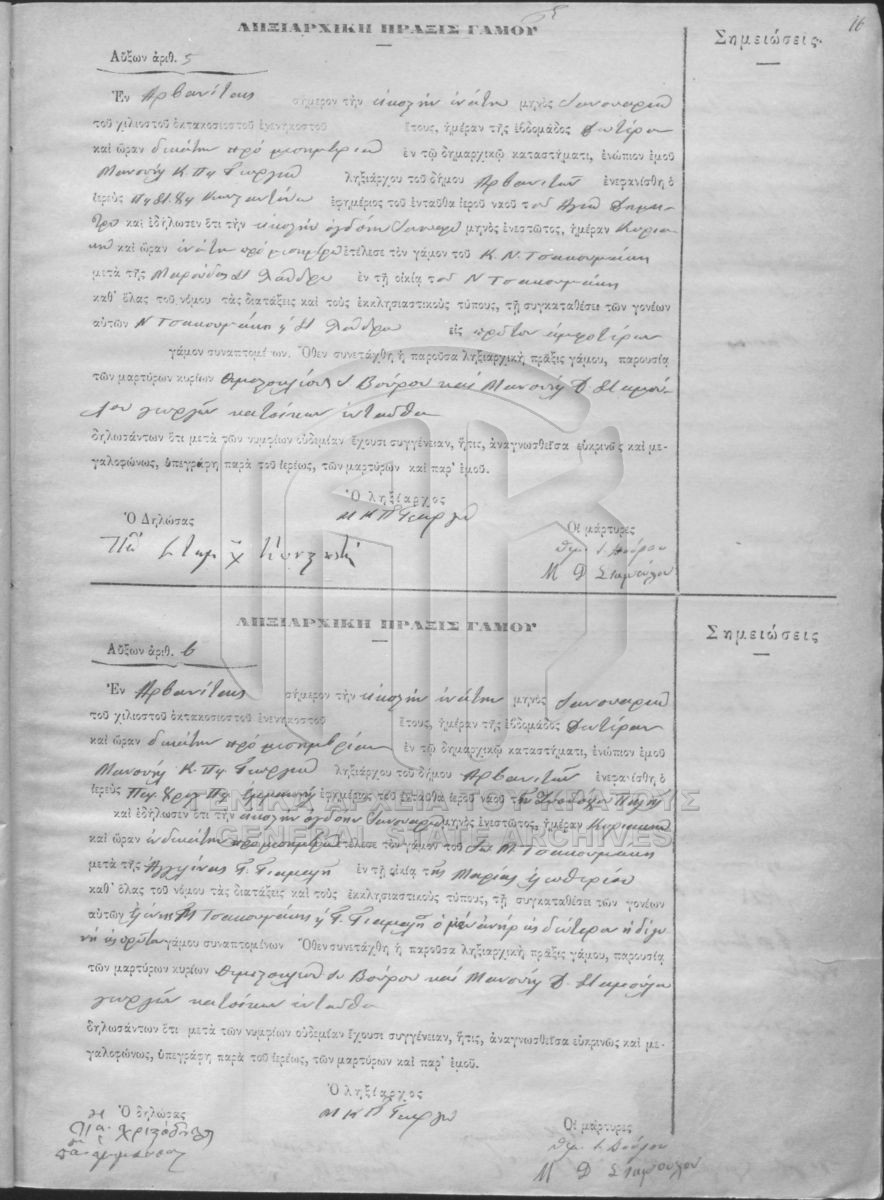 16
ΛΗΞΙΑΡΧΙΚΗ ΠΡΑΞΙΣ ΓΑΜΟΥ
Σημειώσεις.
Αὔξων ἀριθ. 5
Ἐν Αρβανίταις σήμερον τὴν εικοστὴν ἐνάτην μηνὸς Ιανουαρίου
τοῦ χιλιοστοῦ ὀκτακοσιοστοῦ ἐνενηκοστοῦ ἔτους, ἡμέραν τῆς ἑβδομάδος Δευτέραν
καὶ ὥραν δεκάτην πρὸ μεσημβρίας ἐν τῷ δημαρχικῷ καταστήματι, ἐνώπιον ἐμοῦ
Μανουὴλ Κ. Πγ Γεωργίου ληξιάρχου τοῦ δήμου Αρβανιτῶν ἐνεφανίσθη ὁ
ἱερεὺς ἐφημέριος τοῦ ἐνταῦθα ἱεροῦ ναοῦ τοῦ Αγίου Δημη-
τρίου καὶ ἐδήλωσεν ὅτι τὴν εικοστὴν ὀγδόην Ιανουαρ μηνὸς ἐνεστῶτος, ἡμέραν Κυρια-
κὴν καὶ ὥραν ἐνάτην πρὸ μεσημβρίας ἐτέλεσε τὸν γάμον τοῦ Κ. Ν. Τσακουμάκη
μετὰ τῆς Μαρούδας ἐν τῇ οἰκίᾳ τοῦ Ν Τσακουμάκη
καθ' ὅλας τοῦ νόμου τὰς διατάξεις καὶ τοὺς ἐκκλησιαστικοὺς τύπους, τῇ συγκαταθέσει τῶν γονέων
αὐτῶν Ν Τσακουμάκη εἰς πρῶτον ἀμφοτέρων
γάμον συναπτομένων. Ὅθεν συνετάχθη ἡ παροῦσα ληξιαρχικὴ πρᾶξις γάμου, παρουσίᾳ
τῶν μαρτύρων κυρίων Θεμιστοκλέους Ι. Βούρου καὶ Μανουὴλ Δ. Σταμού-
λου γεωργῶν κατοίκων ἐνταῦθα
δηλωσάντων ὅτι μετὰ τῶν νυμφίων οὐδεμίαν ἔχουσι συγγένειαν, ἥτις, ἀναγνωσθεῖσα εὐκρινῶς καὶ με-
γαλοφώνως, ὑπεγράφη παρὰ τοῦ ἱερέως, τῶν μαρτύρων καὶ παρ' ἐμοῦ.
Ὁ ληξίαρχος
Μ Κ Π Γεωργίου
Ὁ Δηλώσας
Οἱ μάρτυρες
Θεμ. Ι. Βούρου
Μ Δ Σταμούλου
ΛΗΞΙΑΡΧΙΚΗ ΠΡΑΞΙΣ ΓΑΜΟΥ
Σημειώσεις
Αὔξων ἀριθ. 6
Ἐν Αρβανίταις σήμερον τὴν εικοστὴν ἐνάτην μηνὸς Ιανουαρίου
τοῦ χιλιοστοῦ ὀκτακοσιοστοῦ ἐνενηκοστοῦ ἔτους, ἡμέραν τῆς ἑβδομάδος Δευτέραν
καὶ ὥραν δεκάτην πρὸ μεσημβρίας ἐν τῷ δημαρχικῷ καταστήματι, ἐνώπιον ἐμοῦ
Μανουὴλ Κ. Πγ Γεωργίου ληξιάρχου τοῦ δήμου Αρβανιτῶν ἐνεφανίσθη ὁ
ἱερεὺς ἐφημέριος τοῦ ἐνταῦθα ἱεροῦ ναοῦ
καὶ ἐδήλωσεν ὅτι τὴν εικοστὴν ὀγδόην Ιανουαρίου μηνὸς ἐνεστῶτος, ἡμέραν Κυριακὴν
καὶ ὥραν ἑνδεκάτην προ μεσημβρίας ἐτέλεσε τὸν γάμον τοῦ Ιω Μ. Τσακουμάκη
μετὰ τῆς ἐν τῇ οἰκίᾳ τῆς Μαρίας
καθ' ὅλας τοῦ νόμου τὰς διατάξεις καὶ τοὺς ἐκκλησιαστικοὺς τύπους, τῇ συγκαταθέσει τῶν γονέων
αὐτῶν Μ Τσακουμάκη ὁ μὲν ἀνὴρ εἰς δεύτερον ἡ δὲ γυ-
νὴ εἰς πρῶτον γάμον συναπτομένων Ὅθεν συνετάχθη ἡ παροῦσα ληξιαρχικὴ πρᾶξις γάμου, παρουσίᾳ
τῶν μαρτύρων κυρίων Θεμιστοκλέους Ιω Βούρου καὶ Μανουὴλ Δ. Σταμούλου
γεωργῶν κατοίκων ἐνταῦθα
δηλωσάντων ὅτι μετὰ τῶν νυμφίων οὐδεμίαν ἔχουσι συγγένειαν, ἥτις, ἀναγνωσθεῖσα εὐκρινῶς καὶ με-
γαλοφώνως, ὑπεγράφη παρὰ τοῦ ἱερέως, τῶν μαρτύρων καὶ παρ' ἐμοῦ.
Ὁ ληξίαρχος
Μ Κ Π Γεωργίου
Ὁ δηλώσας
Οἱ μάρτυρες
Θεμ. Ι. Βούρου
Μ Δ Σταμούλου
ΓΕΝΙΚΑ ΑΡΧΕΙΑ ΤΟΥ ΚΡΑΤΟΥΣ
GENERAL STATE ARCHIVES